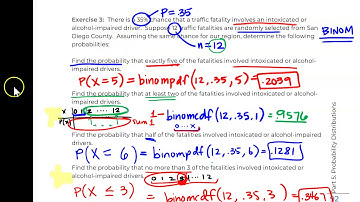 Exercise 3: There is a 35% chance that a traffic fatality involves an intoxicated or
P=.35
alcohol-impaired driver. Suppose 12 traffic fatalities are randomly selected from San
BINOM
Diego County. Assuming the same chance for our region, determine the following
probabilities:
n=12
Find the probability that exactly five of the fatalities involved intoxicated or alcohol-
impaired drivers.
P(X=5) = binompdf(12,.35,5) = .2039
Find the probability that at least two of the fatalities involved intoxicated or alcohol-
impaired drivers.
X 0 1 2 .... 12
P(X)
sum 1
1-binomcdf(12,.35,1) = .9576
0...x
Find the probability that half of the fatalities involved intoxicated or alcohol-
impaired drivers.
P(X = 6) = binompdf(12,.35,6) = .1281
Find the probability that no more than 3 of the fatalities involved intoxicated or
alcohol-impaired drivers.
0 1 2 3 4 ... 12
P(X ≤ 3) = binomcdf(12,.35,3) = .3467
Part 5: Probability Distributions